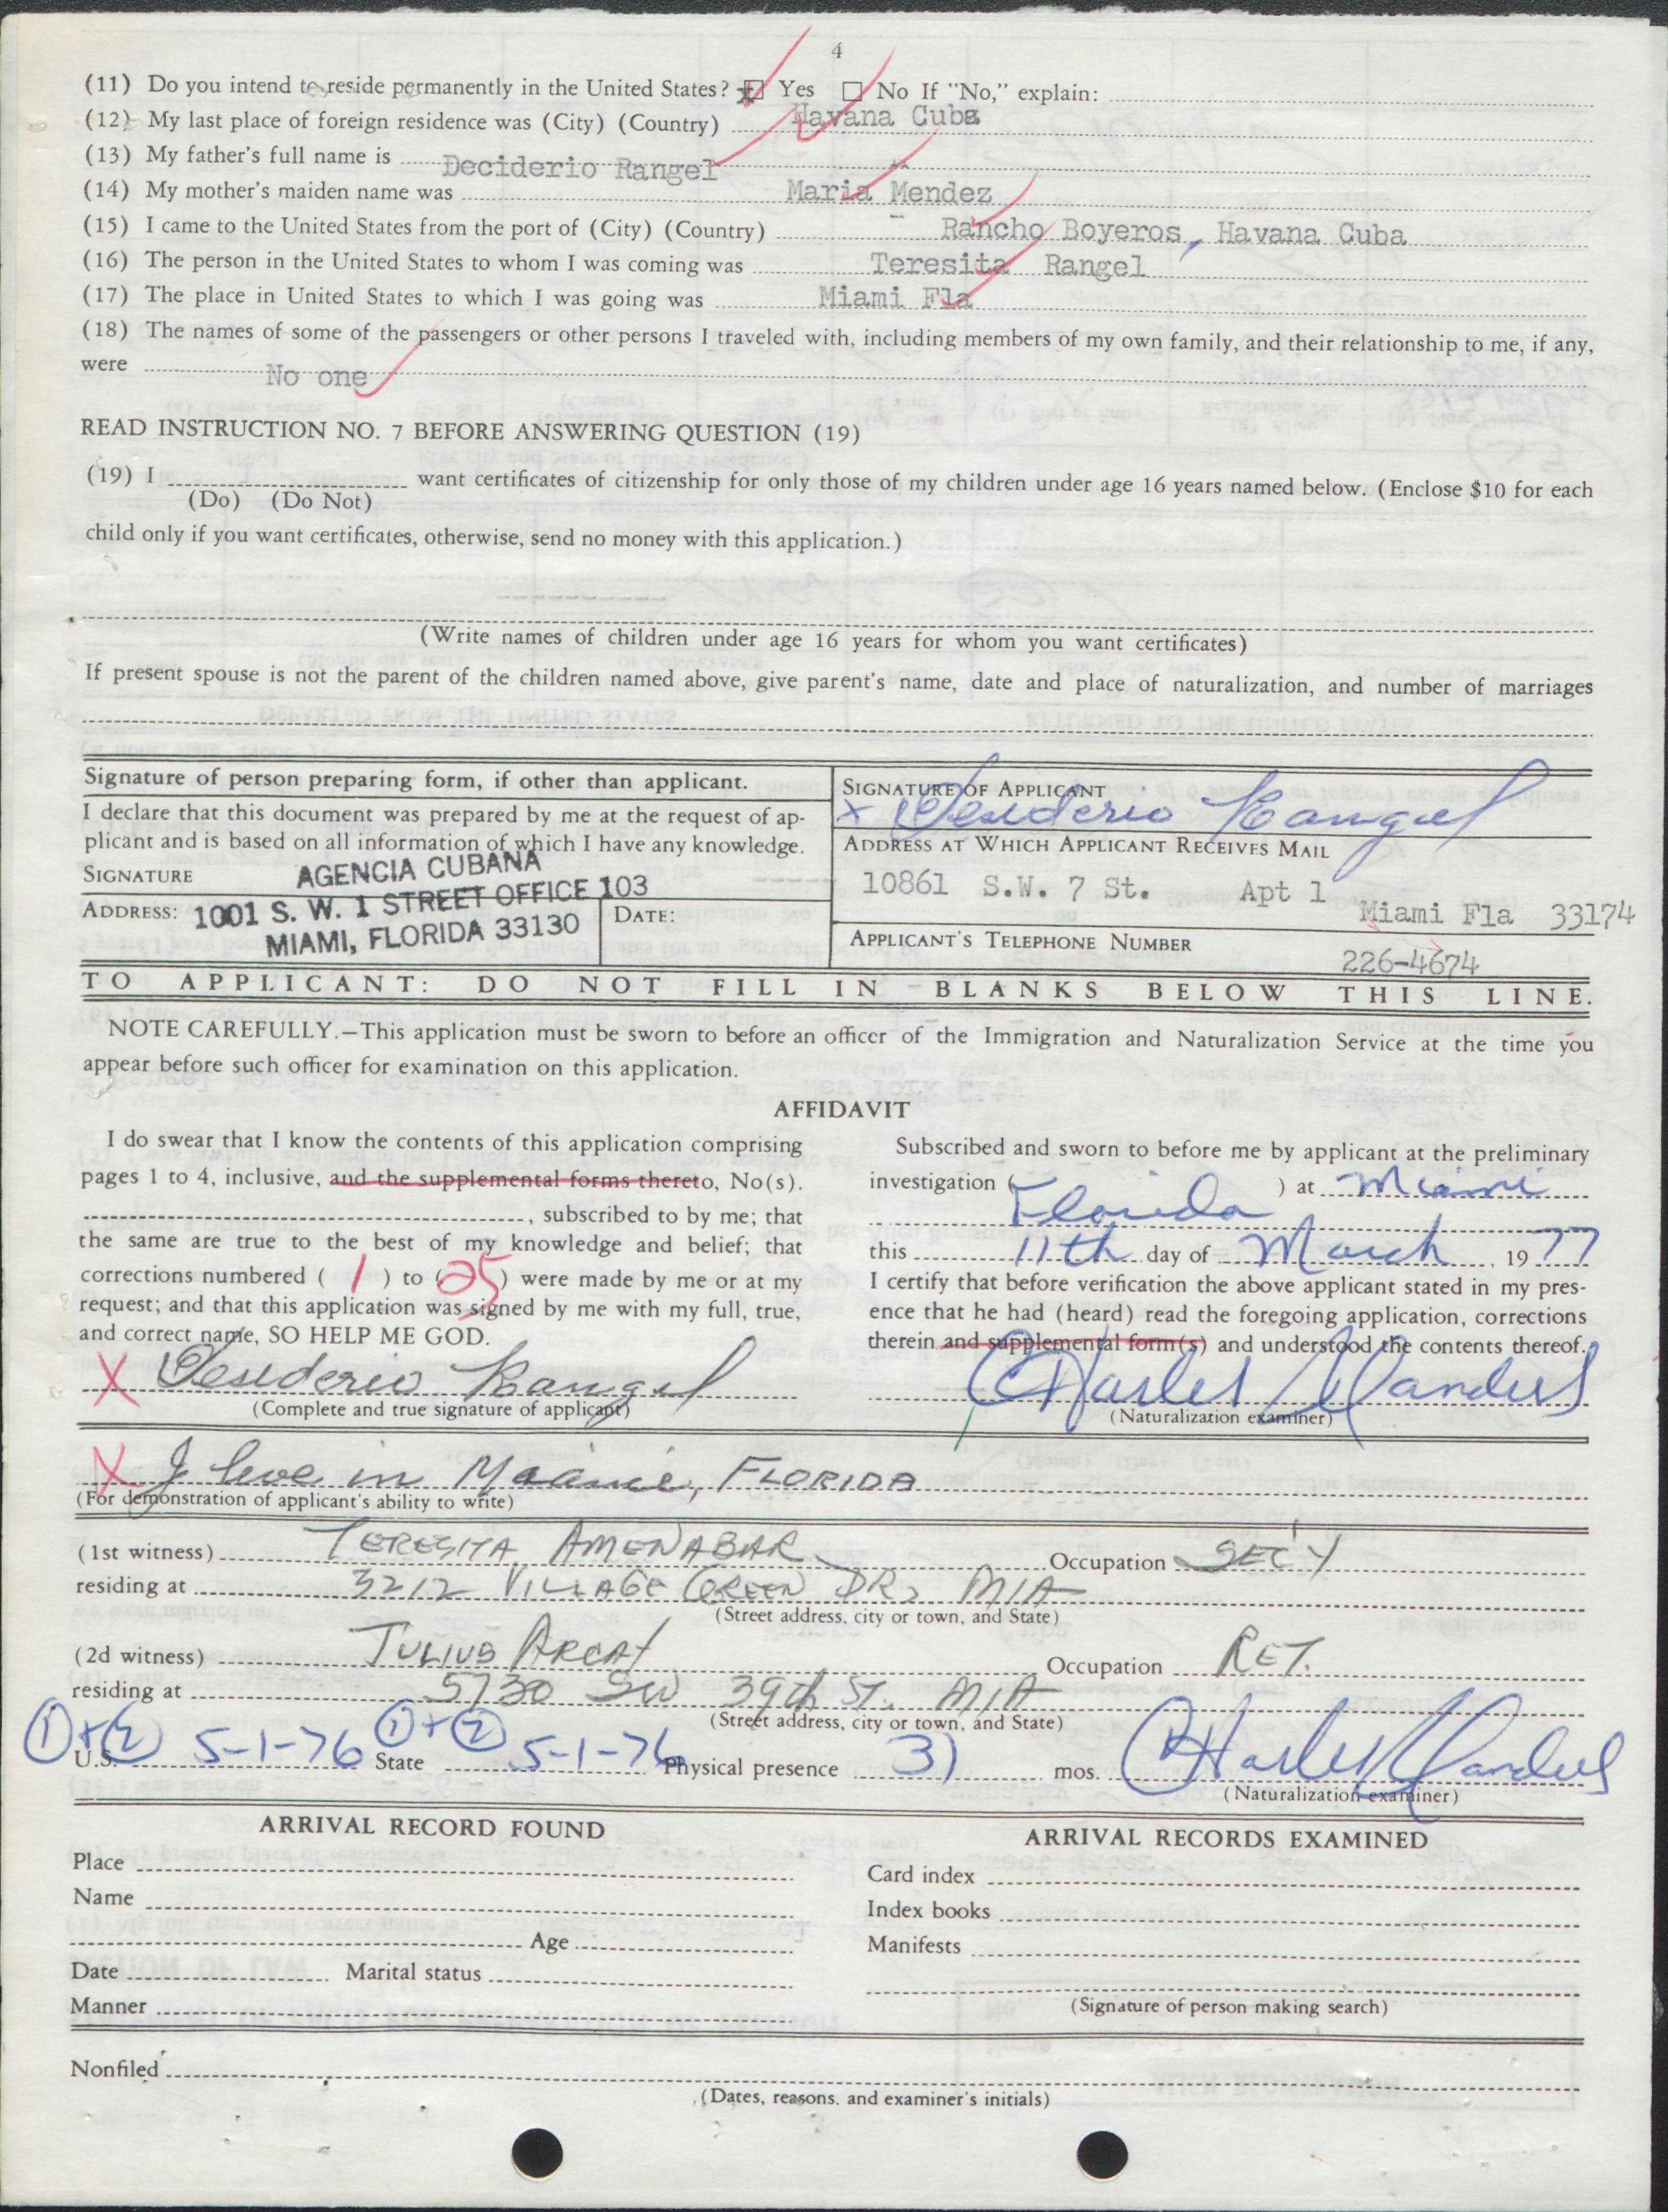 4
(11) Do you intend to reside permanently in the United States? ☒ Yes ☐ No If "No," explain:
(12) My last place of foreign residence was (City) (Country) Havana Cuba
(13) My father's full name is Deciderio Rangel
(14) My mother's maiden name was Maria Mendez
(15) I came to the United States from the port of (City) (Country) Rancho Boyeros, Havana Cuba
(16) The person in the United States to whom I was coming was Teresita Rangel
(17) The place in United States to which I was going was Miami Fla
(18) The names of some of the passengers or other persons I traveled with, including members of my own family, and their relationship to me, if any,
were No one
READ INSTRUCTION NO. 7 BEFORE ANSWERING QUESTION (19)
(19) I want certificates of citizenship for only those of my children under age 16 years named below. (Enclose $10 for each
(Do) (Do Not)
child only if you want certificates, otherwise, send no money with this application.)
(Write names of children under age 16 years for whom you want certificates)
If present spouse is not the parent of the children named above, give parent's name, date and place of naturalization, and number of marriages
Signature of person preparing form, if other than applicant.
I declare that this document was prepared by me at the request of ap-
plicant and is based on all information of which I have any knowledge.
SIGNATURE AGENCIA CUBANA
ADDRESS: 1001 S. W. 1 STREET OFFICE 103
MIAMI, FLORIDA 33130
DATE:
SIGNATURE OF APPLICANT
x Desiderio Rangel
ADDRESS AT WHICH APPLICANT RECEIVES MAIL
10861 S.W. 7 St. Apt 1
Miami Fla 33174
APPLICANT'S TELEPHONE NUMBER
226-4674
TO APPLICANT: DO NOT FILL IN BLANKS BELOW THIS LINE.
NOTE CAREFULLY.—This application must be sworn to before an officer of the Immigration and Naturalization Service at the time you
appear before such officer for examination on this application.
AFFIDAVIT
I do swear that I know the contents of this application comprising
pages 1 to 4, inclusive, and the supplemental forms thereto, No(s).
, subscribed to by me; that
the same are true to the best of my knowledge and belief; that
corrections numbered ( 1 ) to ( 25 ) were made by me or at my
request; and that this application was signed by me with my full, true,
and correct name, SO HELP ME GOD.
X Desiderio Rangel
(Complete and true signature of applicant)
Subscribed and sworn to before me by applicant at the preliminary
investigation ( ) at Miami
Florida
this 11th day of March, 1977
I certify that before verification the above applicant stated in my pres-
ence that he had (heard) read the foregoing application, corrections
therein and supplemental form(s) and understood the contents thereof.
Charles Sanders
(Naturalization examiner)
X I live in Miami, FLORIDA
(For demonstration of applicant's ability to write)
(1st witness) TERESITA AMENABAR Occupation SEC'Y
residing at 3212 VILLAGE GREEN DR, MIA
(Street address, city or town, and State)
(2d witness) JULIUS ARCAY Occupation RET.
residing at 5730 SW 39th ST. MIA
(Street address, city or town, and State)
①+② U.S. 5-1-76 ①+② State 5-1-76 Physical presence 31 mos. Charles Sanders
(Naturalization examiner)
ARRIVAL RECORD FOUND
Place
Name
Age
Date Marital status
Manner
ARRIVAL RECORDS EXAMINED
Card index
Index books
Manifests
(Signature of person making search)
Nonfiled
(Dates, reasons, and examiner's initials)